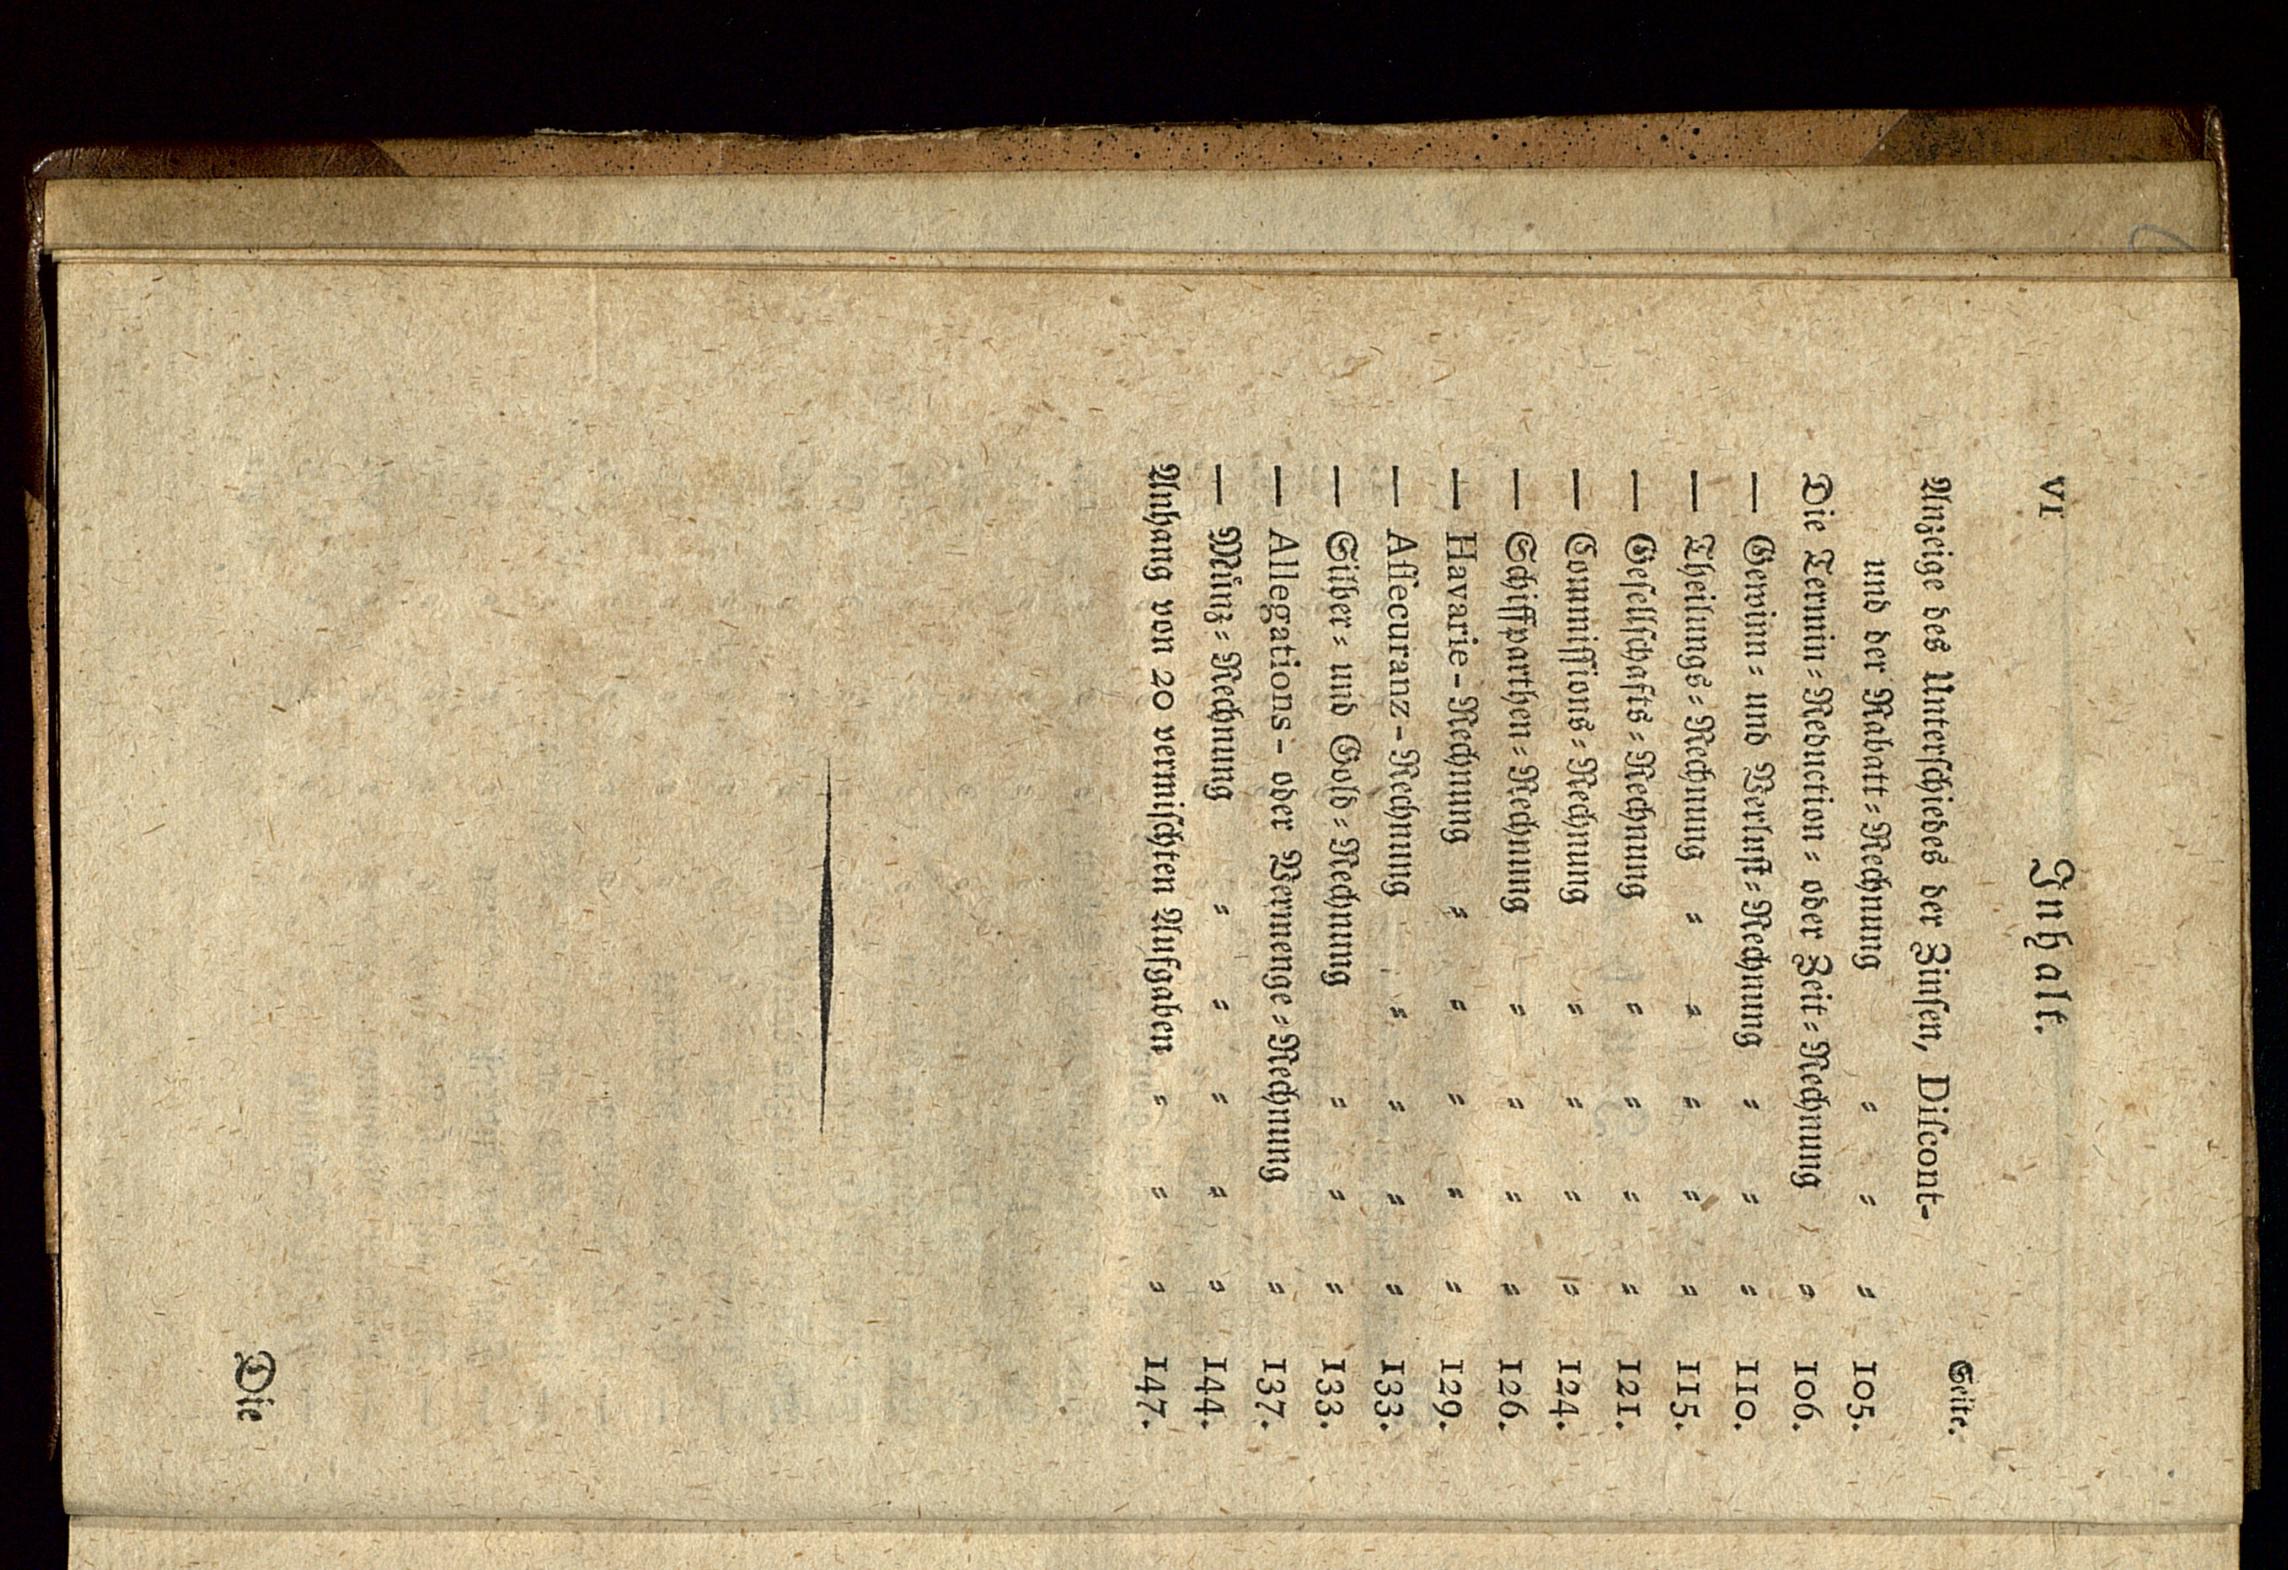 VI Inhalt.
Seite.
Anzeige des Unterschiedes der Zinsen, Discont-
und der Rabatt=Rechnung = = = 105.
Die Termin=Reduction= oder Zeit=Rechnung = 106.
— Gewinn= und Verlust=Rechnung = = = 110.
— Theilungs=Rechnung = = = = = 115.
— Gesellschafts=Rechnung = = = = 121.
— Commissions=Rechnung = = = = 124.
— Schiffparthen=Rechnung = = = = 126.
— Havarie-Rechnung = = = = = 129.
— Assecuranz-Rechnung = = = = 133.
— Silber= und Gold=Rechnung = = = 133.
— Allegations- oder Vermenge=Rechnung = 137.
— Münz=Rechnung = = = = = 144.
Anhang von 20 vermischten Aufgaben = = = 147.
Die